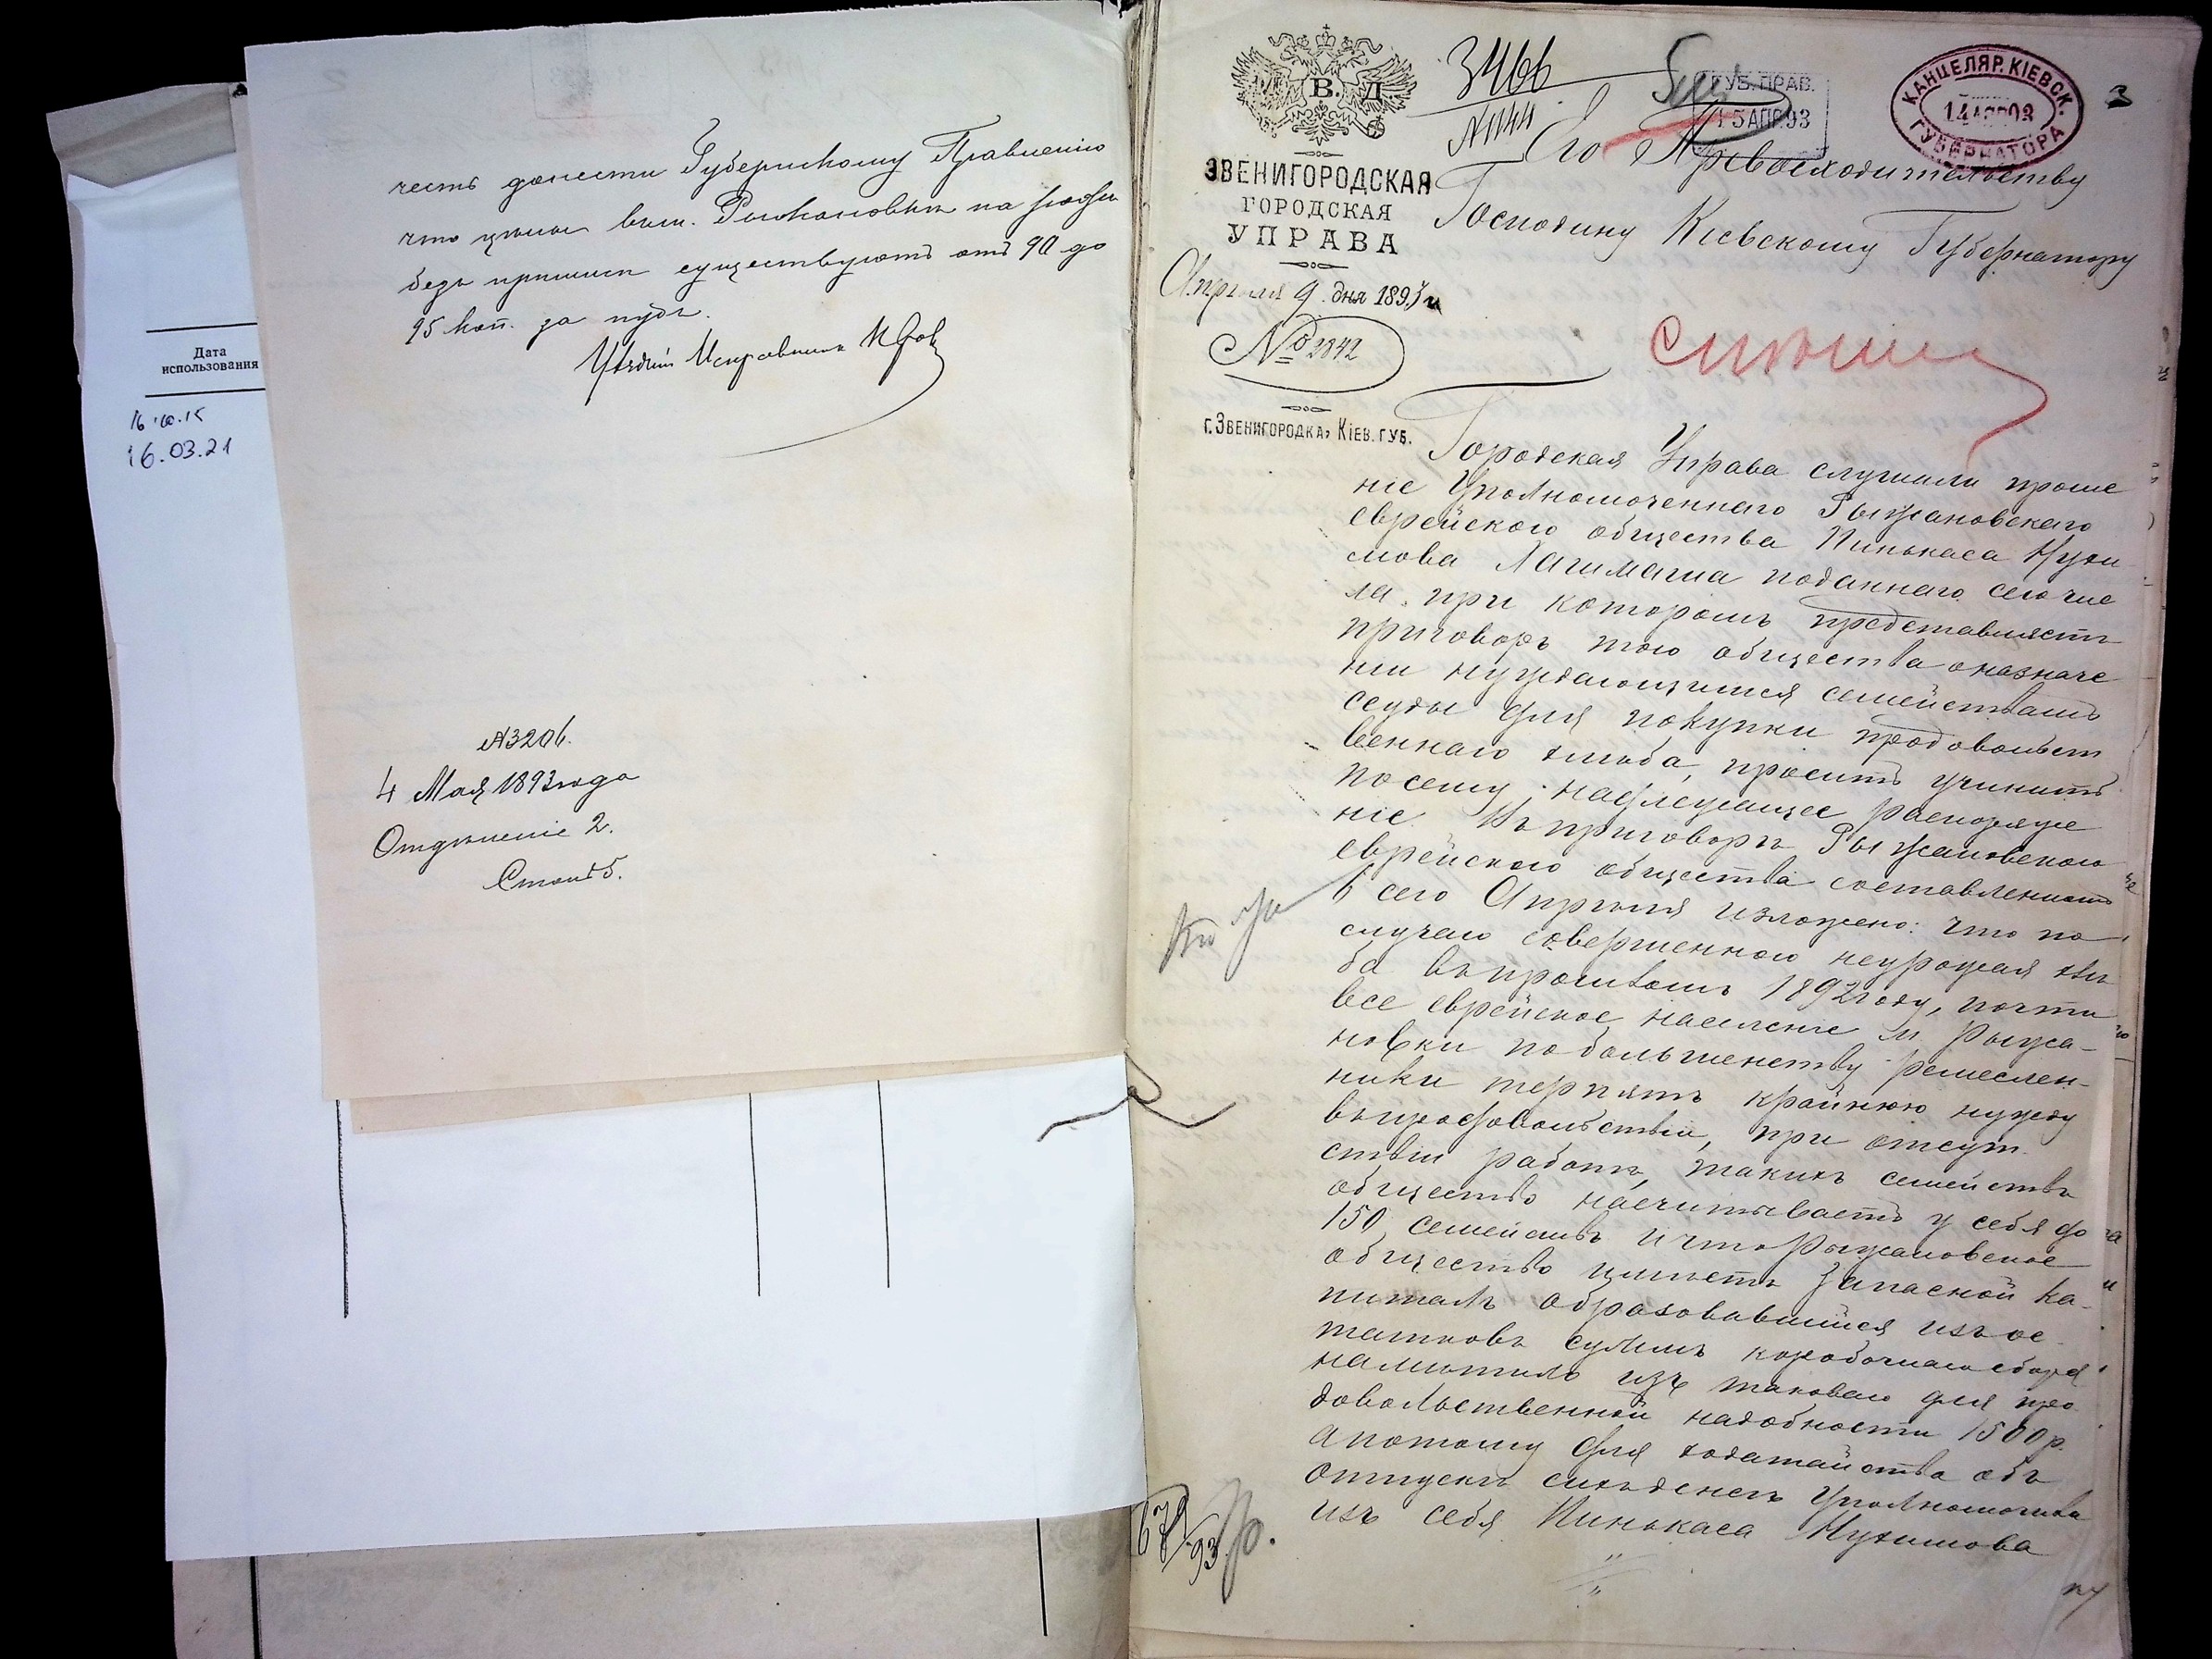 честь донести Губернскому Правленію
что цены въ м. Рыжановки на рожь
безъ примеси существуютъ отъ 90 до
95 коп. за пудъ.
Уѣздный Исправникъ
№ 3206.
4 Мая 1893 года
Отдѣленіе 2.
Столъ 5.
Дата
использования
16.03.21
М.В.Д.
3466
ГУБ. ПРАВ.
15 АПР. 93
КАНЦЕЛЯР. КІЕВСК.
14 АПР 93
ГУБЕРНАТОРА
3
ЗВЕНИГОРОДСКАЯ
ГОРОДСКАЯ
УПРАВА
Апрѣля 9 дня 1893 г.
№ 2842
г. ЗВЕНИГОРОДКА, КІЕВ. ГУБ.
Его Превосходительству
Господину Кіевскому Губернатору
Городская Управа слушали проше
ніе Уполномоченнаго Рыжановскаго
еврейского общества Пинькаса Нухи
мова поданнаго сего чис
ла, при которомъ представляетъ
приговоръ того общества о назначе
ніи нуждающимся семействамъ
ссуды для покупки продовольст
веннаго хлѣба, проситъ учинить
по сему надлежащее распоряже
ніе. Въ приговорѣ Рыжановского
еврейского общества составленномъ
6 сего Апрѣля изложено: что по
случаю совершенного неурожая хлѣ
ба въ прошломъ 1892 году, почти
все еврейское населеніе м. Рыжа-
новки по большенству ремеслен-
ники терпятъ крайнюю нужду
въ продовольствіи, при отсут
ствіи работъ, такихъ семействъ
общество насчитываетъ у себя до
150 семействъ и что Рыжановское
общество имѣетъ запасной ка-
питалъ образовавшійся изъ ос
татковъ суммъ коробочнаго сбора
намѣтило изъ таковаго для про
довольственной надобности 1500 р.
а потому для ходатайства объ
отпускѣ сихъ денегъ Уполномочива
изъ себя Пинькаса Нухимова
679/93